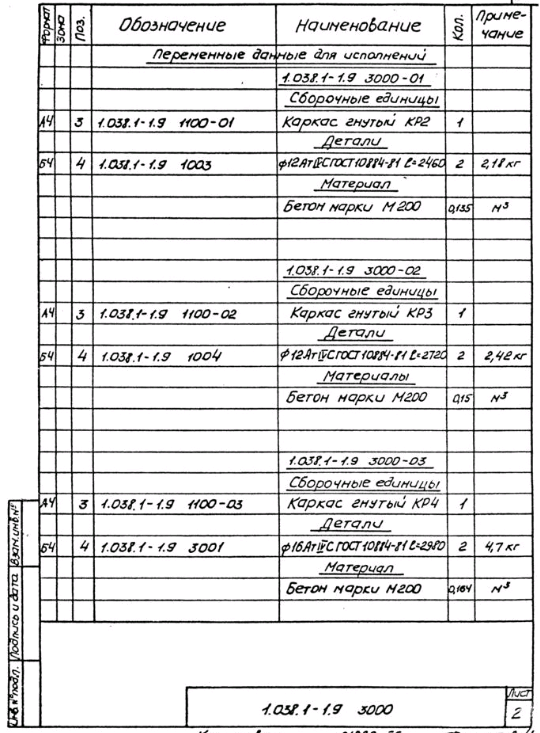 Формат Зона Поз. Обозначение Наименование Кол. Приме-
чание
Переменные данные для исполнений
1.038.1-1.9 3000-01
Сборочные единицы
А4 3 1.038.1-1.9 1100-01 Каркас гнутый КР2 1
Детали
Б4 4 1.038.1-1.9 1003 ф12АтIVС ГОСТ 10884-81 ℓ=2460 2 2,18 кг
Материал
Бетон марки М200 0,135 м³
1.038.1-1.9 3000-02
Сборочные единицы
А4 3 1.038.1-1.9 1100-02 Каркас гнутый КР3 1
Детали
Б4 4 1.038.1-1.9 1004 ф12АтIVС ГОСТ 10884-81 ℓ=2720 2 2,42 кг
Материалы
Бетон марки М200 0,15 м³
1.038.1-1.9 3000-03
Сборочные единицы
А4 3 1.038.1-1.9 1100-03 Каркас гнутый КР4 1
Детали
Б4 4 1.038.1-1.9 3001 ф16АтIVС ГОСТ 10884-81 ℓ=2980 2 4,7 кг
Материал
Бетон марки М200 0,164 м³
Инв. № подл. Подпись и дата Взам. инв. №
1.038.1-1.9 3000
Лист
2